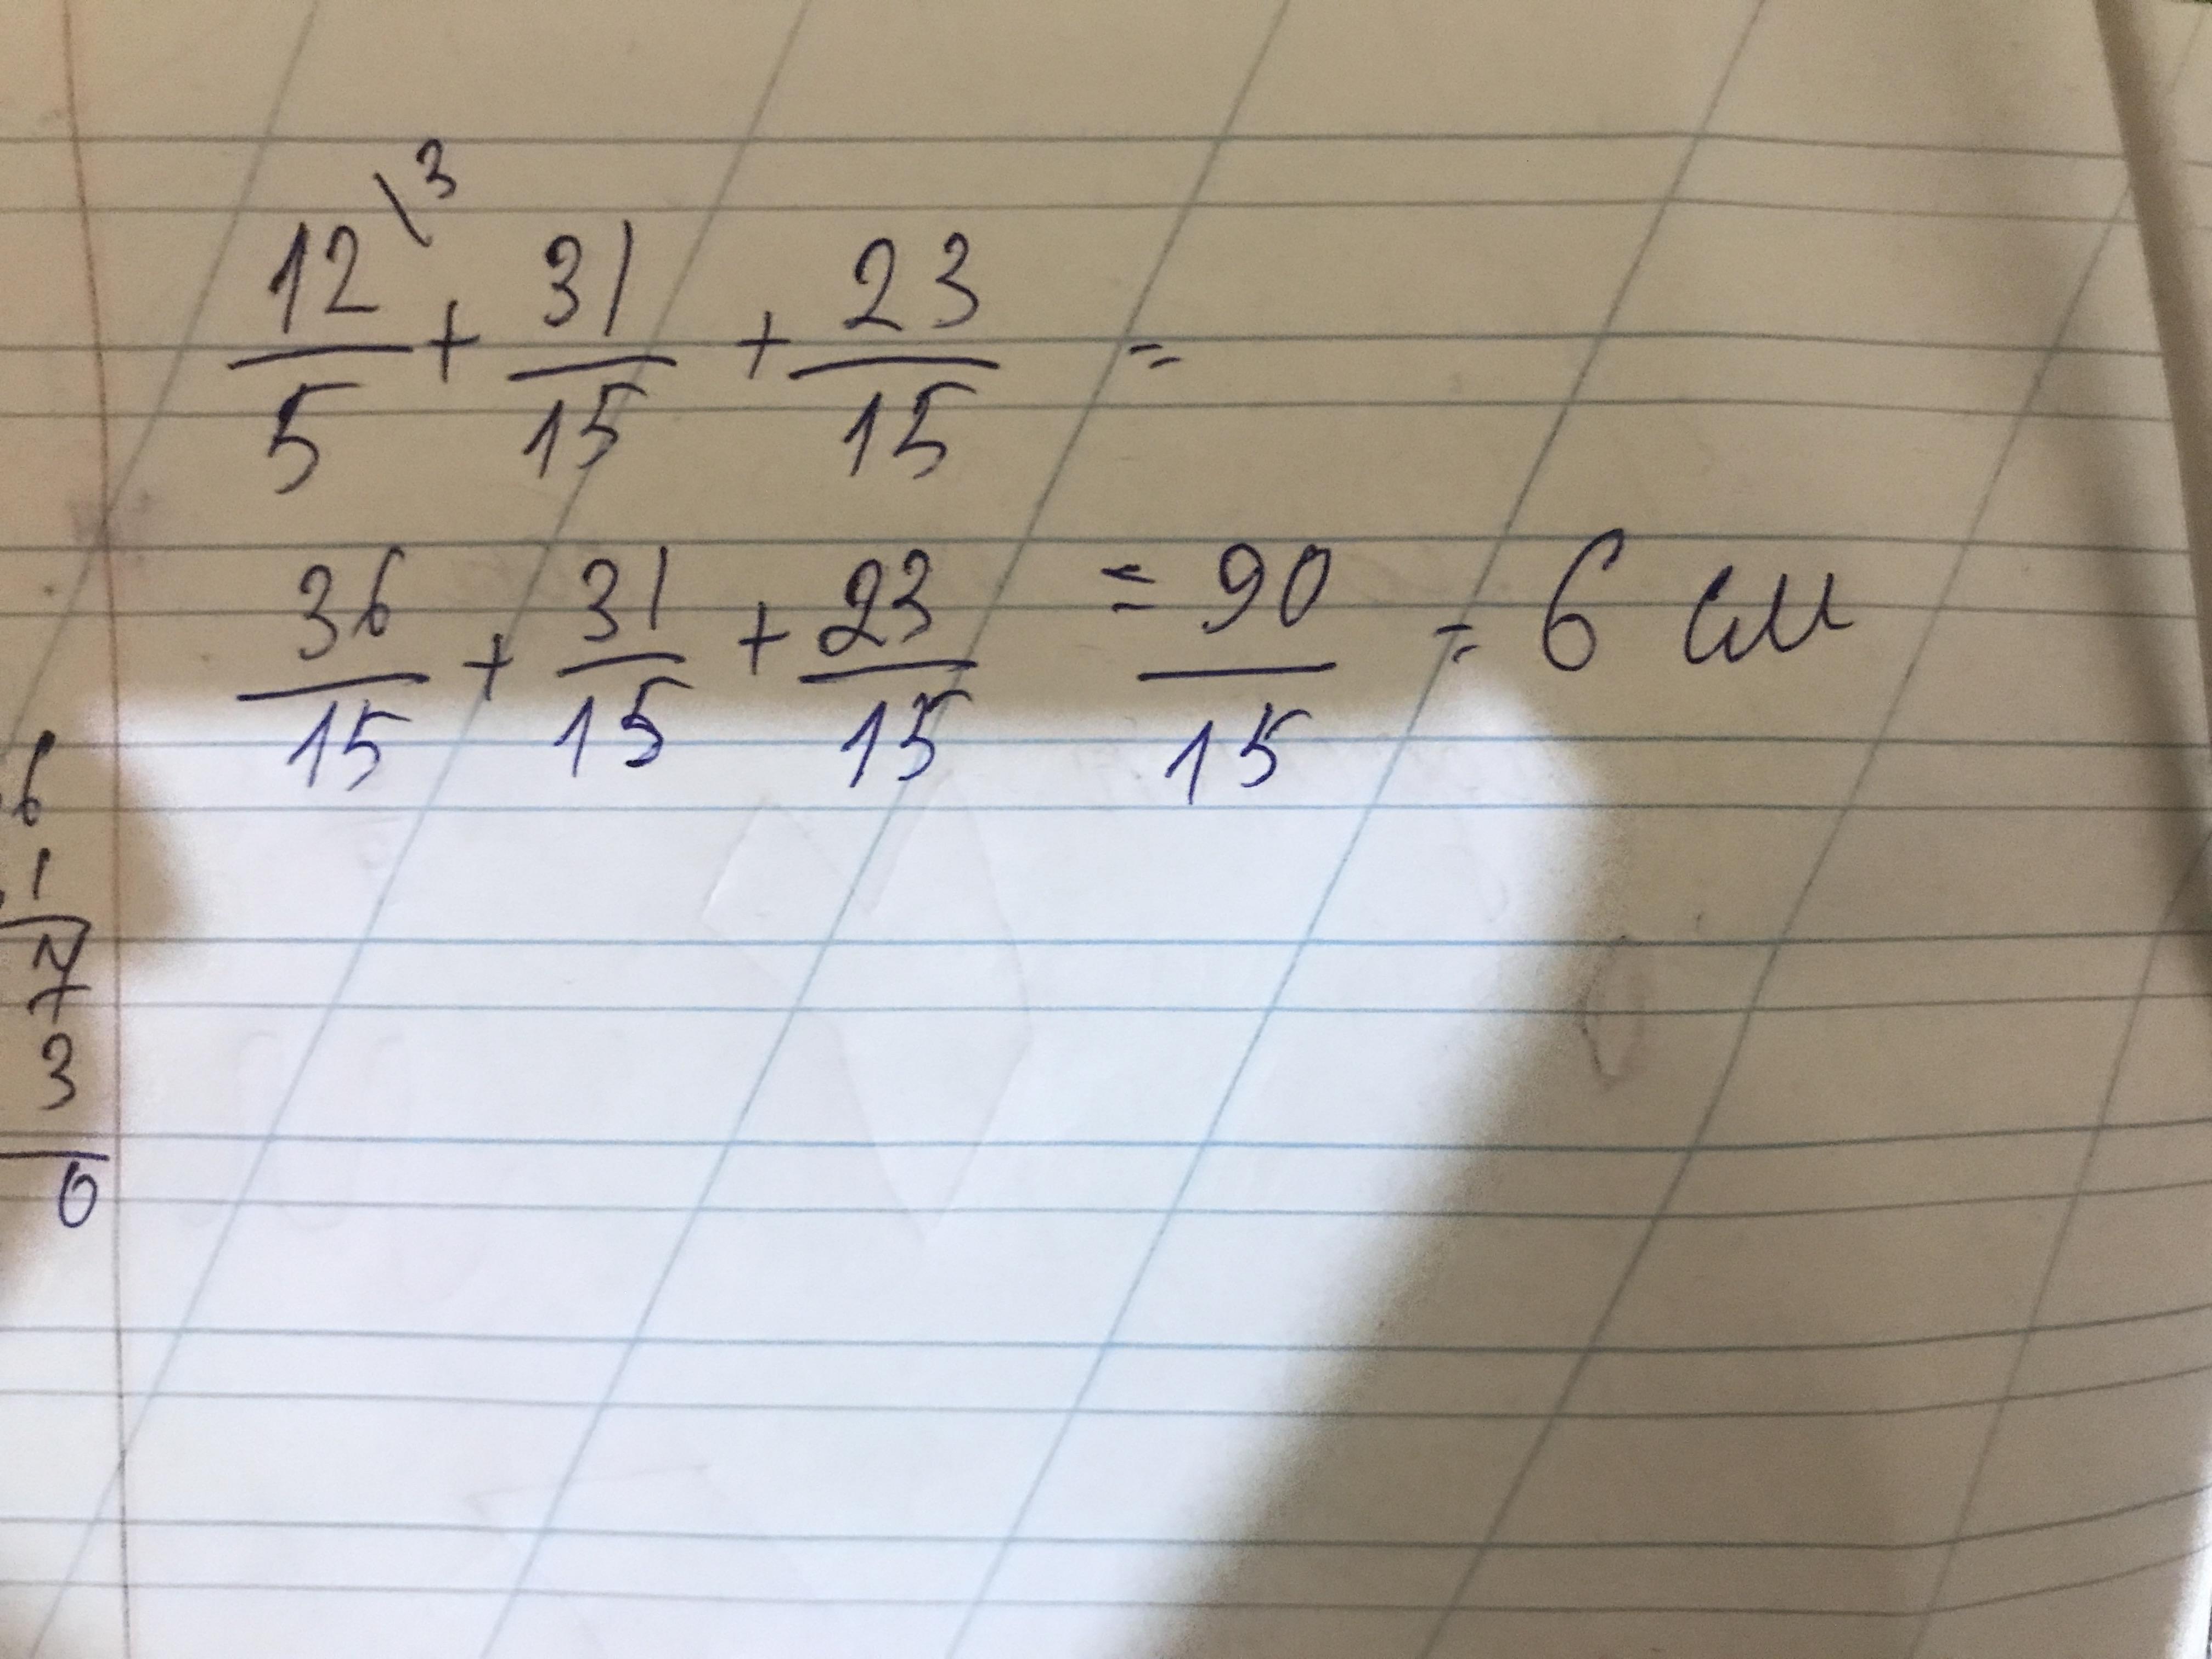 12\3/5 + 31/15 + 23/15 =
36/15 + 31/15 + 23/15 = 90/15 = 6 см
6
1
7
3
0